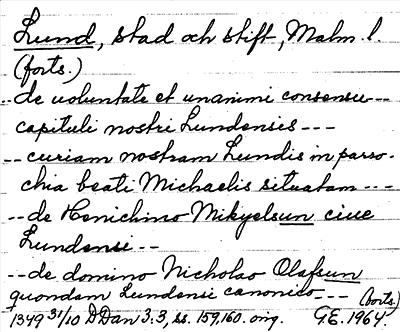 Lund, stad och stift, Malm. l.
(forts.)
-- de voluntate et unanimi consensu ---
capituli nostri Lundensis ---
-- curiam nostram Lundis in parro-
chia beati Michaelis situatam ---
-- de Henichino Mikyelsun ciue
Lundensi --
-- de domino Nicholao Olafsun
quondam Lundensi canonico --- (forts.)
1349 31/10 DDan 3:3, ss. 159, 160. orig. G.E. 1964.